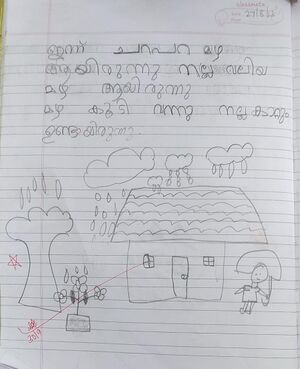 classmate
Date
Page
ഇന്ന് ചറപറ മഴ
ആയിരുന്നു നല്ല വലിയ
മഴ ആയിരുന്നു
മഴ കൂടി വന്നു നല്ല കാറ്റും
ഉണ്ടായിരുന്നു.